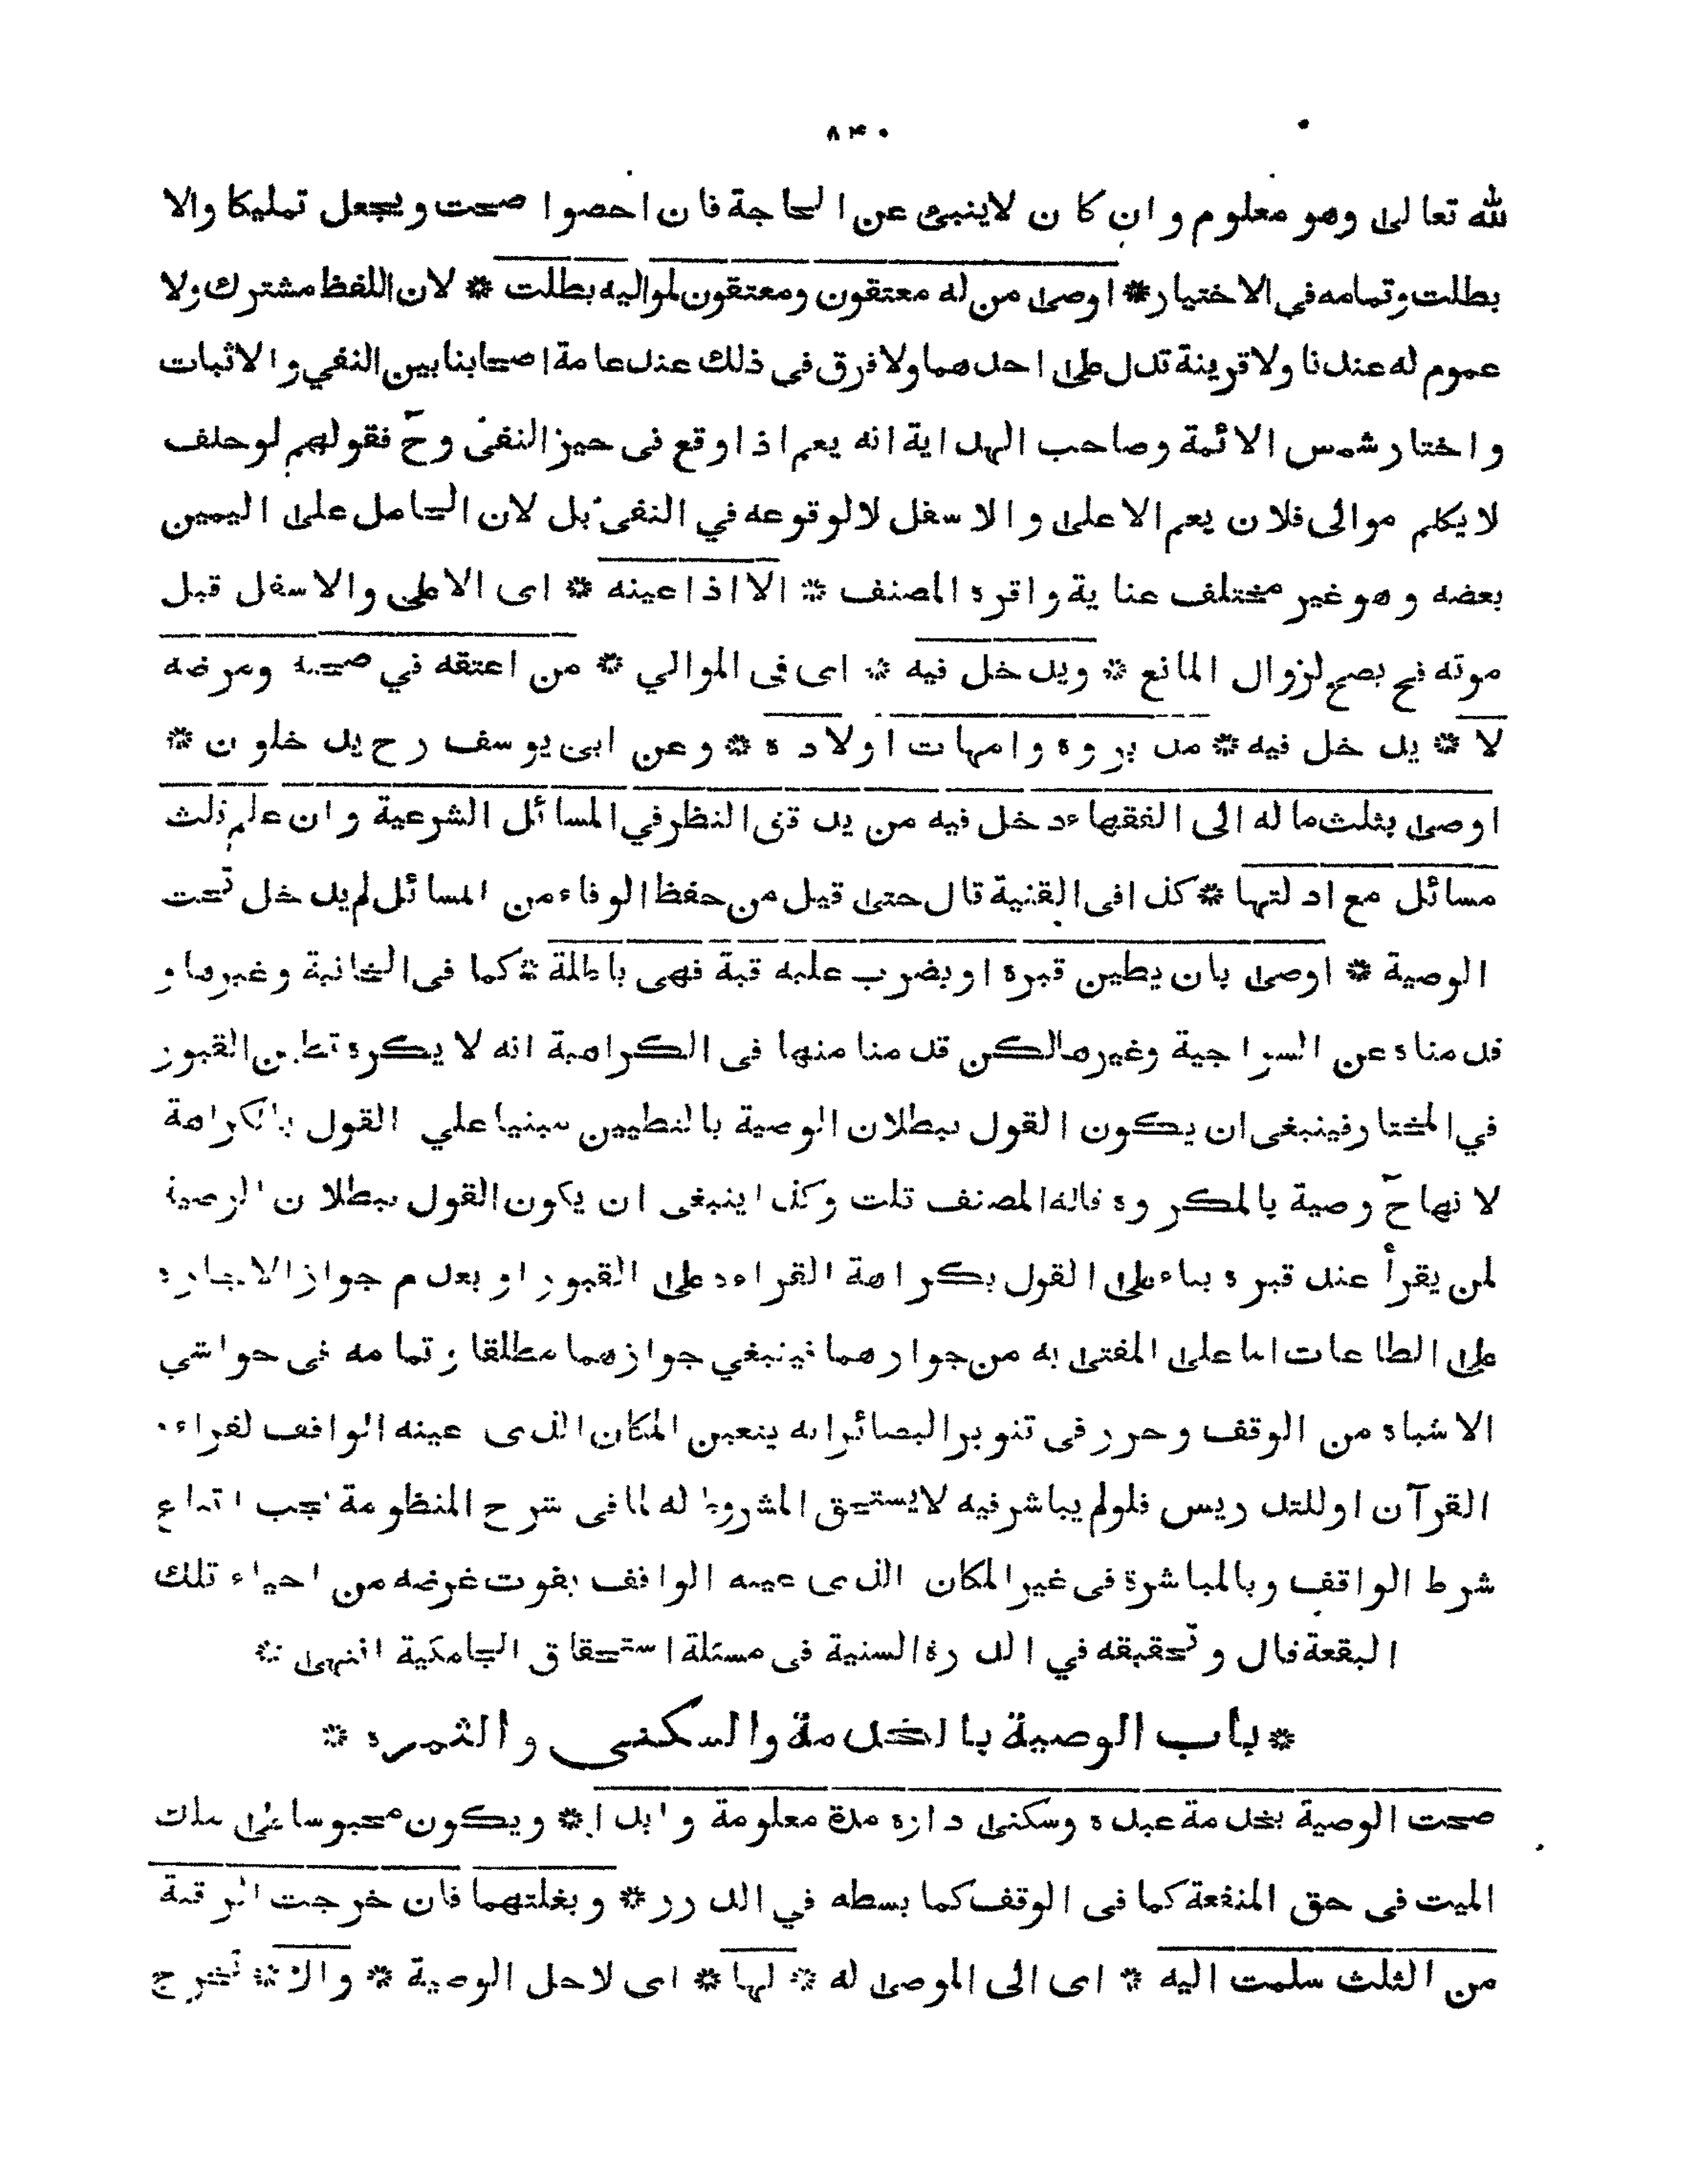 ٨۴٠
لله تعالى وهو معلوم وان كان لاينبئ عن الحاجة فان احصوا صحت ويجعل تمليكا والا
بطلت وتمامه فى الاختيار * اوصى من له معتقون ومعتقون لمواليه بطلت * لان اللفظ مشترك ولا
عموم له عندنا ولا قرينة تدل على احدهما ولا فرق فى ذلك عند عامة اصحابنا بين النفي والاثبات
واختار شمس الائمة وصاحب الهداية انه يعم اذا وقع فى حيز النفى وحٓ فقولهم لو حلف
لا يكلم موالى فلان يعم الاعلى والاسفل لا لوقوعه في النفى بل لان الحامل على اليمين
بعضه وهو غير مختلف عناية واقره المصنف * الا اذا عينه * اى الاعلى والاسفل قبل
موته فح يصح لزوال المانع * ويدخل فيه * اى فى الموالي * من اعتقه في صحته ومرضه
لا * يدخل فيه * مدبروه وامهات اولاده * وعن ابى يوسف رح يدخلون *
اوصى بثلث ماله الى الفقهاء دخل فيه من يدقق النظر في المسائل الشرعية وان علم ثلث
مسائل مع ادلتها * كذا فى القنية قال حتى قيل من حفظ الوفاء من المسائل لم يدخل تحت
الوصية * اوصى بان يطين قبره او يضرب عليه قبة فهى باطلة * كما فى الخانية وغيرها و
قدمناه عن السراجية وغيرها لكن قدمنا منها فى الكراهية انه لا يكره تطيين القبور
في المختار فينبغى ان يكون القول ببطلان الوصية بالتطيين مبنيا علي القول بالكراهة
لانها حٓ وصية بالمكروه قاله المصنف قلت وكذا ينبغى ان يكون القول ببطلان الوصية
لمن يقرأ عند قبره بناء على القول بكراهة القراءة على القبور او بعدم جواز الاجارة
على الطاعات اما على المفتى به من جوازهما فينبغي جوازهما مطلقا وتمامه فى حواشي
الاشباه من الوقف وحرر فى تنوير البصائر انه يتعين المكان الذى عينه الواقف لقراءة
القرآن او للتدريس فلو لم يباشر فيه لا يستحق المشروط له لما فى شرح المنظومة يجب اتباع
شرط الواقف وبالمباشرة فى غير المكان الذى عينه الواقف يفوت غرضه من احياء تلك
البقعة قال وتحقيقه في الدرة السنية فى مسئلة استحقاق الجامكية انتهى *
* باب الوصية بالخدمة والسكنى والثمرة *
صحت الوصية بخدمة عبده وسكنى داره مدة معلومة وابدا * ويكون محبوسا على ملك
الميت فى حق المنفعة كما فى الوقف كما بسطه في الدرر * وبغلتهما فان خرجت الرقبة
من الثلث سلمت اليه * اى الى الموصى له * لها * اى لاجل الوصية * والا * تخرج